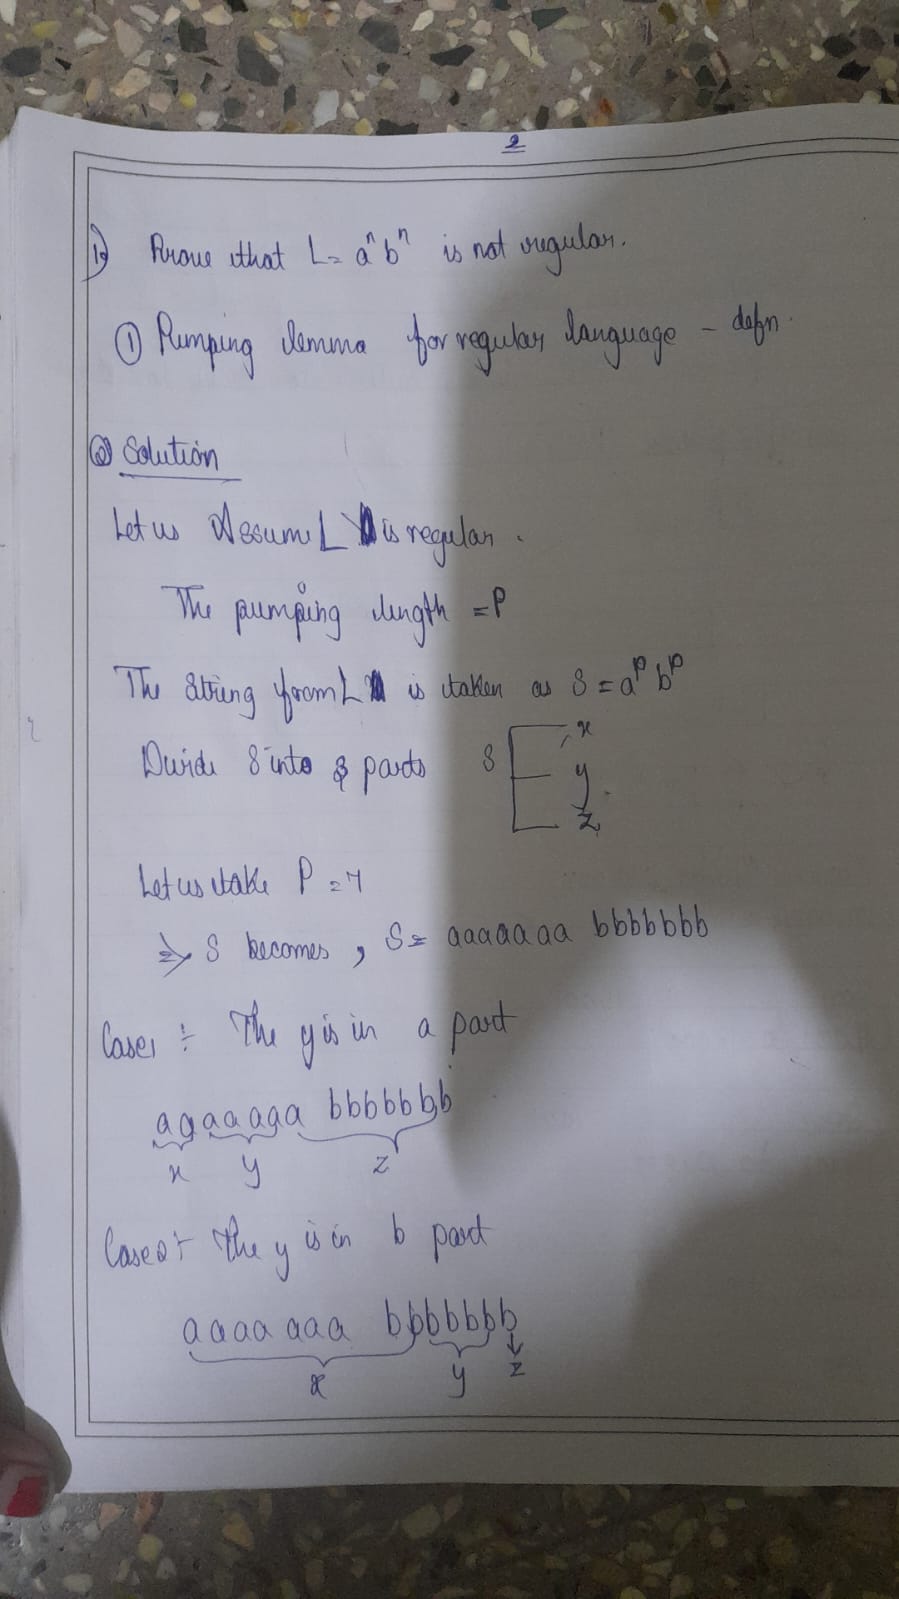 2
1) Prove that L = aⁿbⁿ is not regular.
① Pumping lemma for regular language - defn.
② Solution
Let us Assume L is regular.
The pumping length = P
The String from L is taken as S = aᵖ bᵖ
Divide S into 3 parts S x
y
z
Let us take P = 7
⇒ S becomes, S = aaaaaaa bbbbbbb
Case1 :- The y is in a part
aaaaaaa bbbbbbb
x y z
Case2 :- The y is in b part
aaaa aaa bbbbbbb
x y z